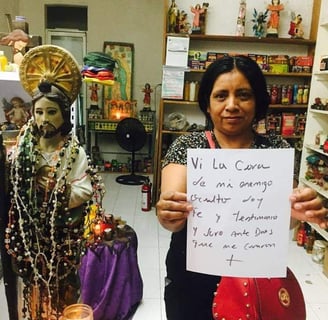 Vi La Cara
de mi enemigo
oculto doy
fe y Testimonio
y Juro ante Dios
que me curaron